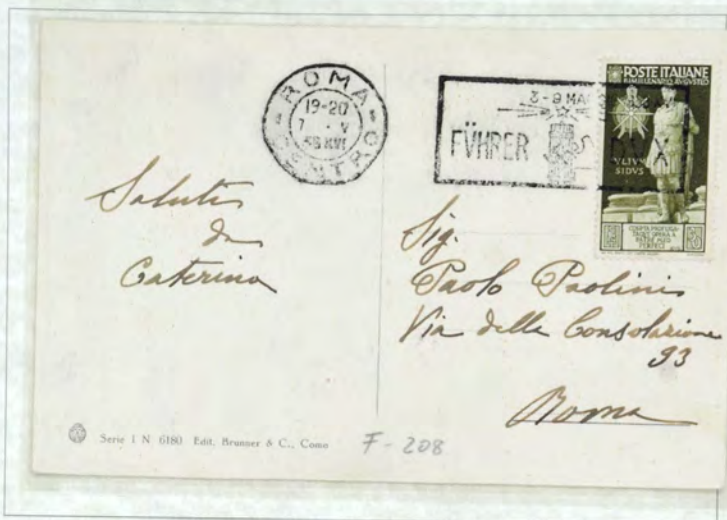 ROMA CENTRO
19-20
7 · V
38 XVI
3-9 MAG
FÜHRER DVX
POSTE ITALIANE
BIMILLENARIO AVGVSTEO
IVLIVM
SIDVS
Saluti
da
Caterina
Sig.
Paolo Paolini
Via della Consolazione
93
Roma
Serie 1 N 6180 Edit. Brunner & C., Como
F-208